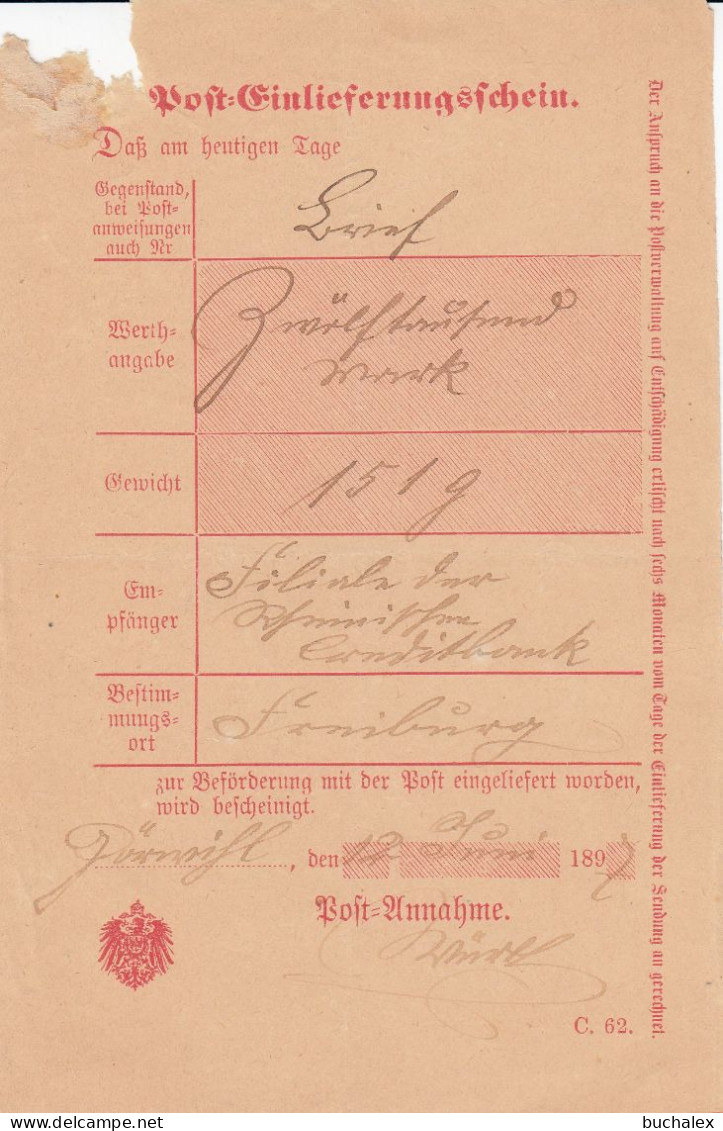 Post-Einlieferungsschein.
Daß am heutigen Tage
Gegenstand,
bei Post-
anweisungen
auch Nr
Brief
Werth-
angabe
Zwölftausend
Mark
Gewicht
151 g
Em-
pfänger
Filiale der
Rheinischen
Creditbank
Bestim-
mungs-
ort
Freiburg
zur Beförderung mit der Post eingeliefert worden,
wird bescheinigt.
Görwihl, den 12 Juni 1897
Post-Annahme.
C. 62.
Der Anspruch an die Postverwaltung auf Entschädigung erlischt nach sechs Monaten vom Tage der Einlieferung der Sendung an gerechnet.
buchalex